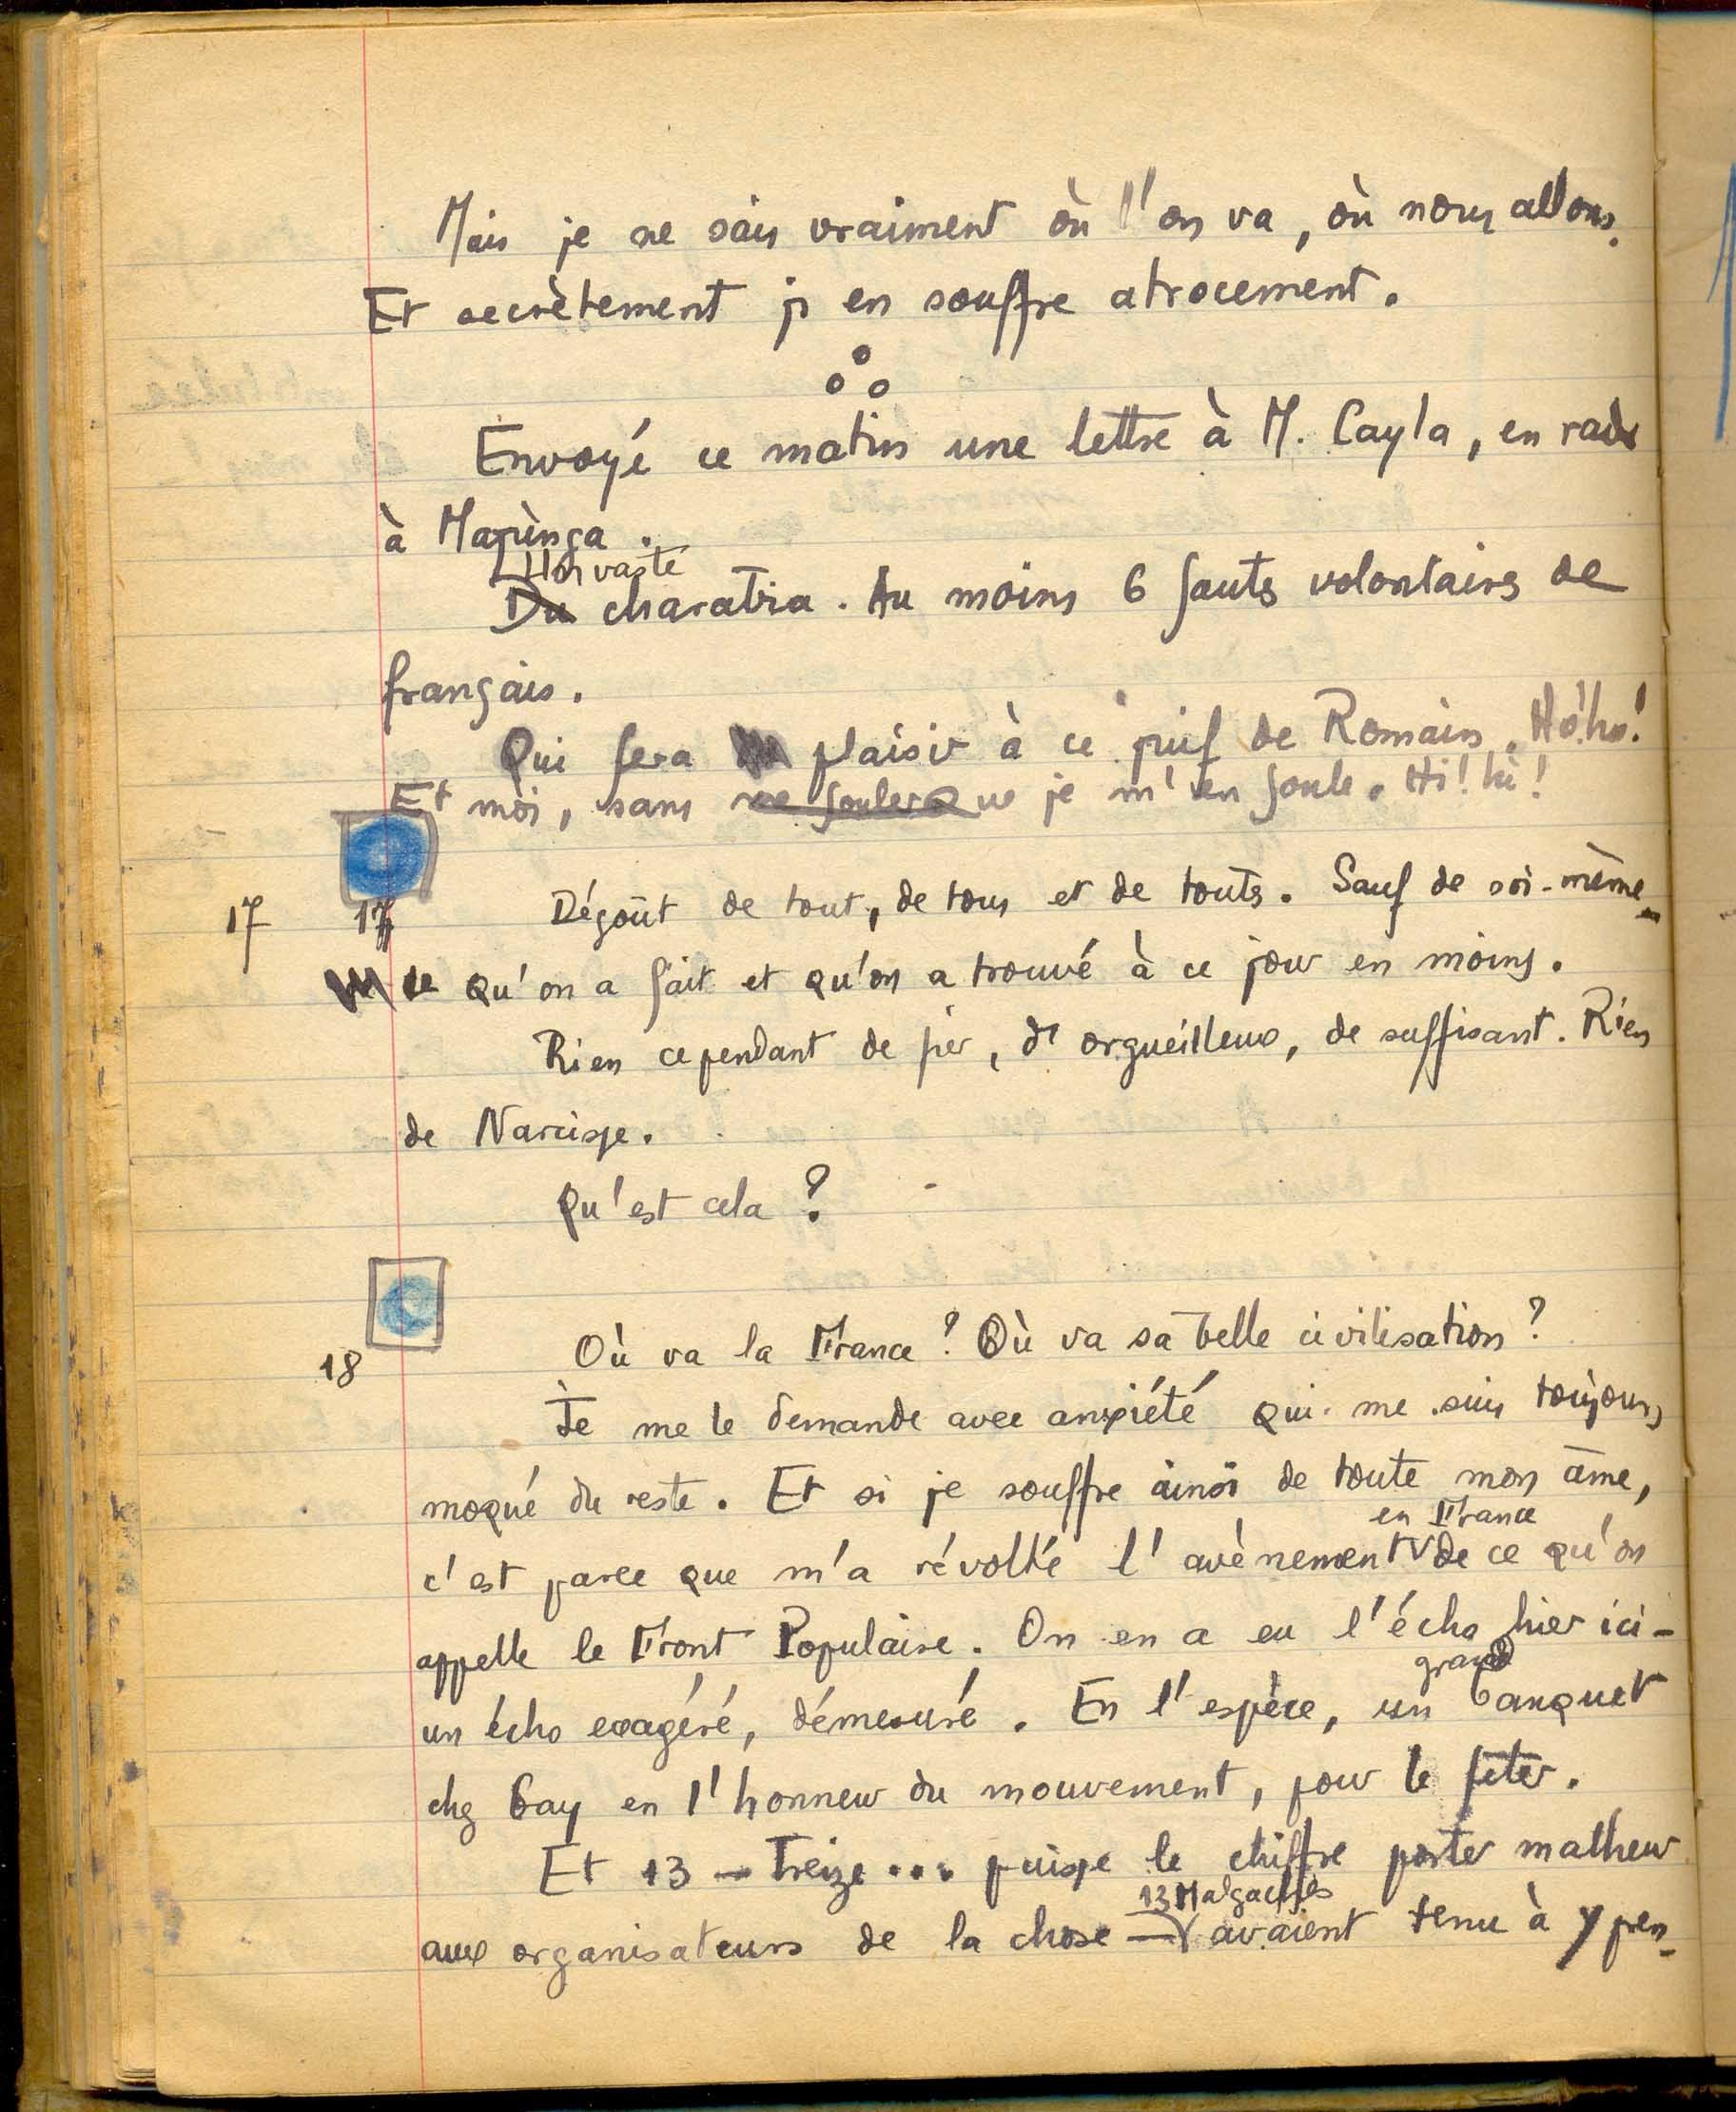 Mais je ne sais vraiment où l'on va, où nous allons.
Et secrètement j'en souffre atrocement.
Envoyé ce matin une lettre à M. Cayla, en rade
à Majunga.
Du charabia. Au moins 6 fauts volontaires de
français.
Qui fera plaisir à ce juif de Romain. Ho! ho!
Et moi, sans que je m'en foule. Hi! hi!
17 17 Dégoût de tout, de tous et de touts. Sauf de soi-même_
ce qu'on a fait et qu'on a trouvé à ce jour en moins.
Rien cependant de fier, d'orgueilleux, de suffisant. Rien
de Narcisse.
Qu'est cela ?
18 Où va la France ? Où va sa belle civilisation ?
Je me le demande avec anxiété qui me suis toujours
moqué du reste. Et si je souffre ainsi de toute mon âme,
en France
c'est parce que m'a révolté l'avènement de ce qu'on
appelle le Front Populaire. On en a eu l'écho hier ici -
grand
un écho exagéré, démesuré. En l'espèce, un banquet
chez Gay en l'honneur du mouvement, pour le fêter.
Et 13 — Treize... puisse le chiffre porter malheur
13 Malgaches
aux organisateurs de la chose — avaient tenu à y pren-